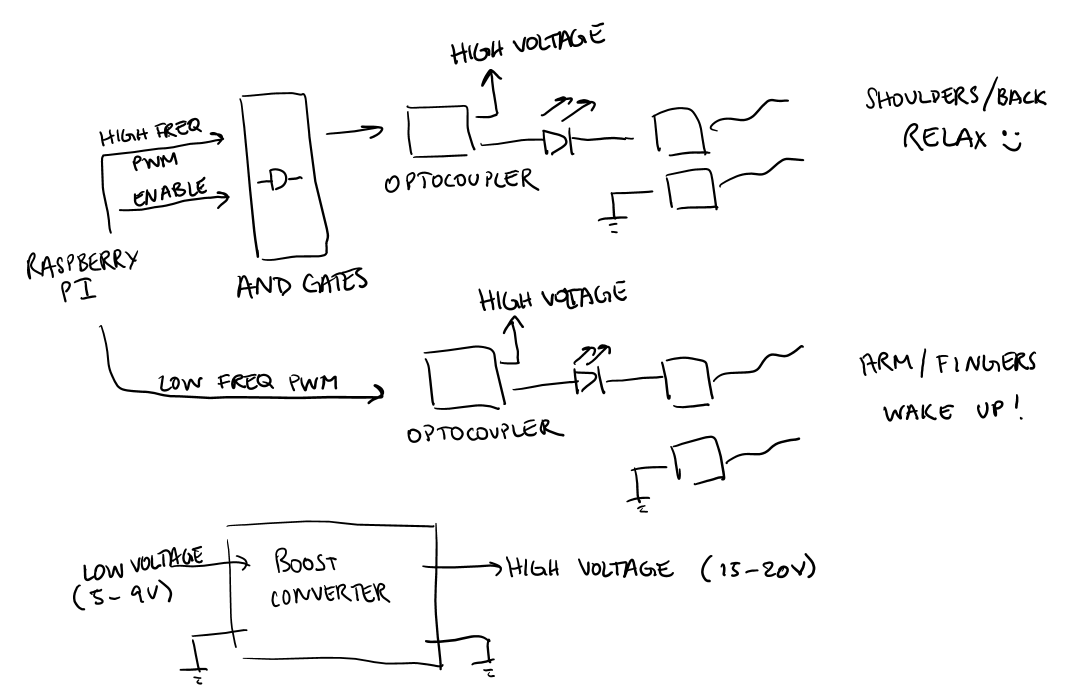 HIGH VOLTAGE
HIGH FREQ
PWM
ENABLE
OPTOCOUPLER
SHOULDERS/BACK
RELAX :)
RASPBERRY
PI
AND GATES
HIGH VOLTAGE
LOW FREQ PWM
OPTOCOUPLER
ARM/FINGERS
WAKE UP!
LOW VOLTAGE
(5-9V)
BOOST
CONVERTER
HIGH VOLTAGE (15-20V)